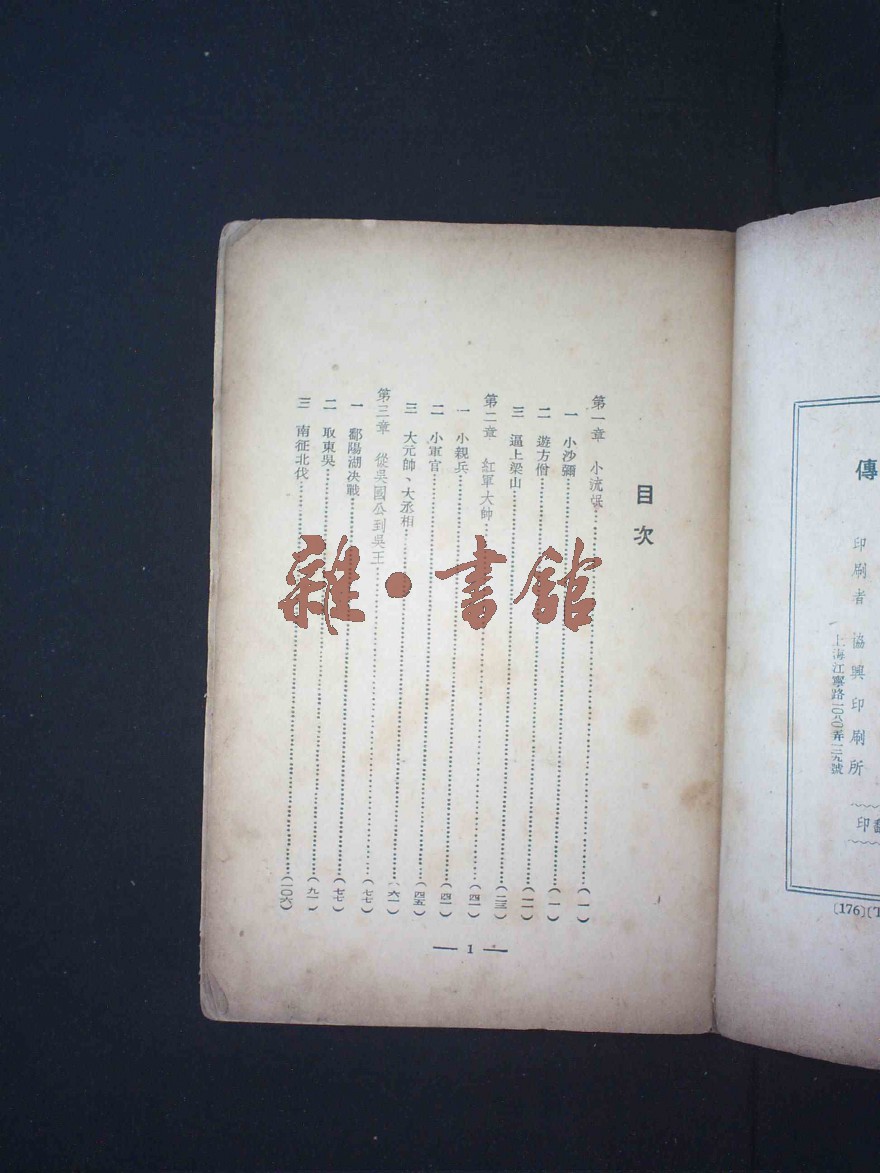 傳
印刷者 協興印刷所
上海江寧路一〇八〇弄一二九號
〔176〕(T
目次
第一章 小流氓……(一)
一 小沙彌……(一)
二 遊方僧……(一一)
三 逼上梁山……(二三)
第二章 紅軍大帥……(四一)
一 小親兵……(四一)
二 小軍官……(四五)
三 大元帥、大丞相……(六一)
第三章 從吳國公到吳王……(七七)
一 鄱陽湖決戰……(七七)
二 取東吳……(九一)
三 南征北伐……(一〇六)
— 1 —
雜·書館